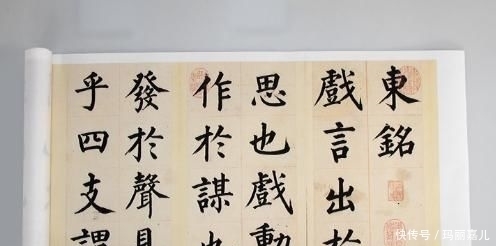 東銘
戲言出於
思也戲動
作於謀也
發於聲見
乎四支謂
快传号／玛丽嘉儿